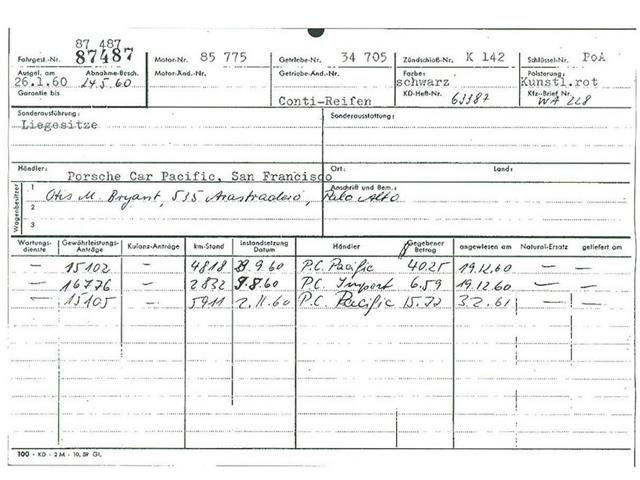 87 487
Fahrgest.-Nr. 87487 Motor-Nr. 85 775 Getriebe-Nr. 34 705 Zündschloß-Nr. K 142 Schlüssel-Nr. PoA
Ausgel. am Abnahme-Besch. Motor-Änd.-Nr. Getriebe-Änd.-Nr. Farbe: Polsterung:
26.1.60 24.5.60 schwarz Kunstl.rot
Garantie bis Conti-Reifen KD-Heft-Nr. 63387 Kfz-Brief Nr. WA 228
Sonderausführung: Sonderausstattung:
Liegesitze
Händler: Porsche Car Pacific, San Francisco Ort: Land:
Wagenbesitzer
1 Otis M. Bryant, 535 Arastradero, Palo Alto Anschrift und Bem.:
2
3
Wartungsdienste Gewährleistungs-Anträge Kulanz-Anträge km-Stand Instandsetzung Datum Händler Gegebener Betrag angewiesen am Natural-Ersatz geliefert am
— 15102 — 4818 9.60 P.C. Pacific 40.25 19.12.60 — —
— 16776 — 2832 9.8.60 P.C. Import 6.59 19.12.60 — —
— 15105 — 5911 2.11.60 P.C. Pacific 15.72 3.2.61 — —
100 - KD - 2 M - 10. 59 Gt.